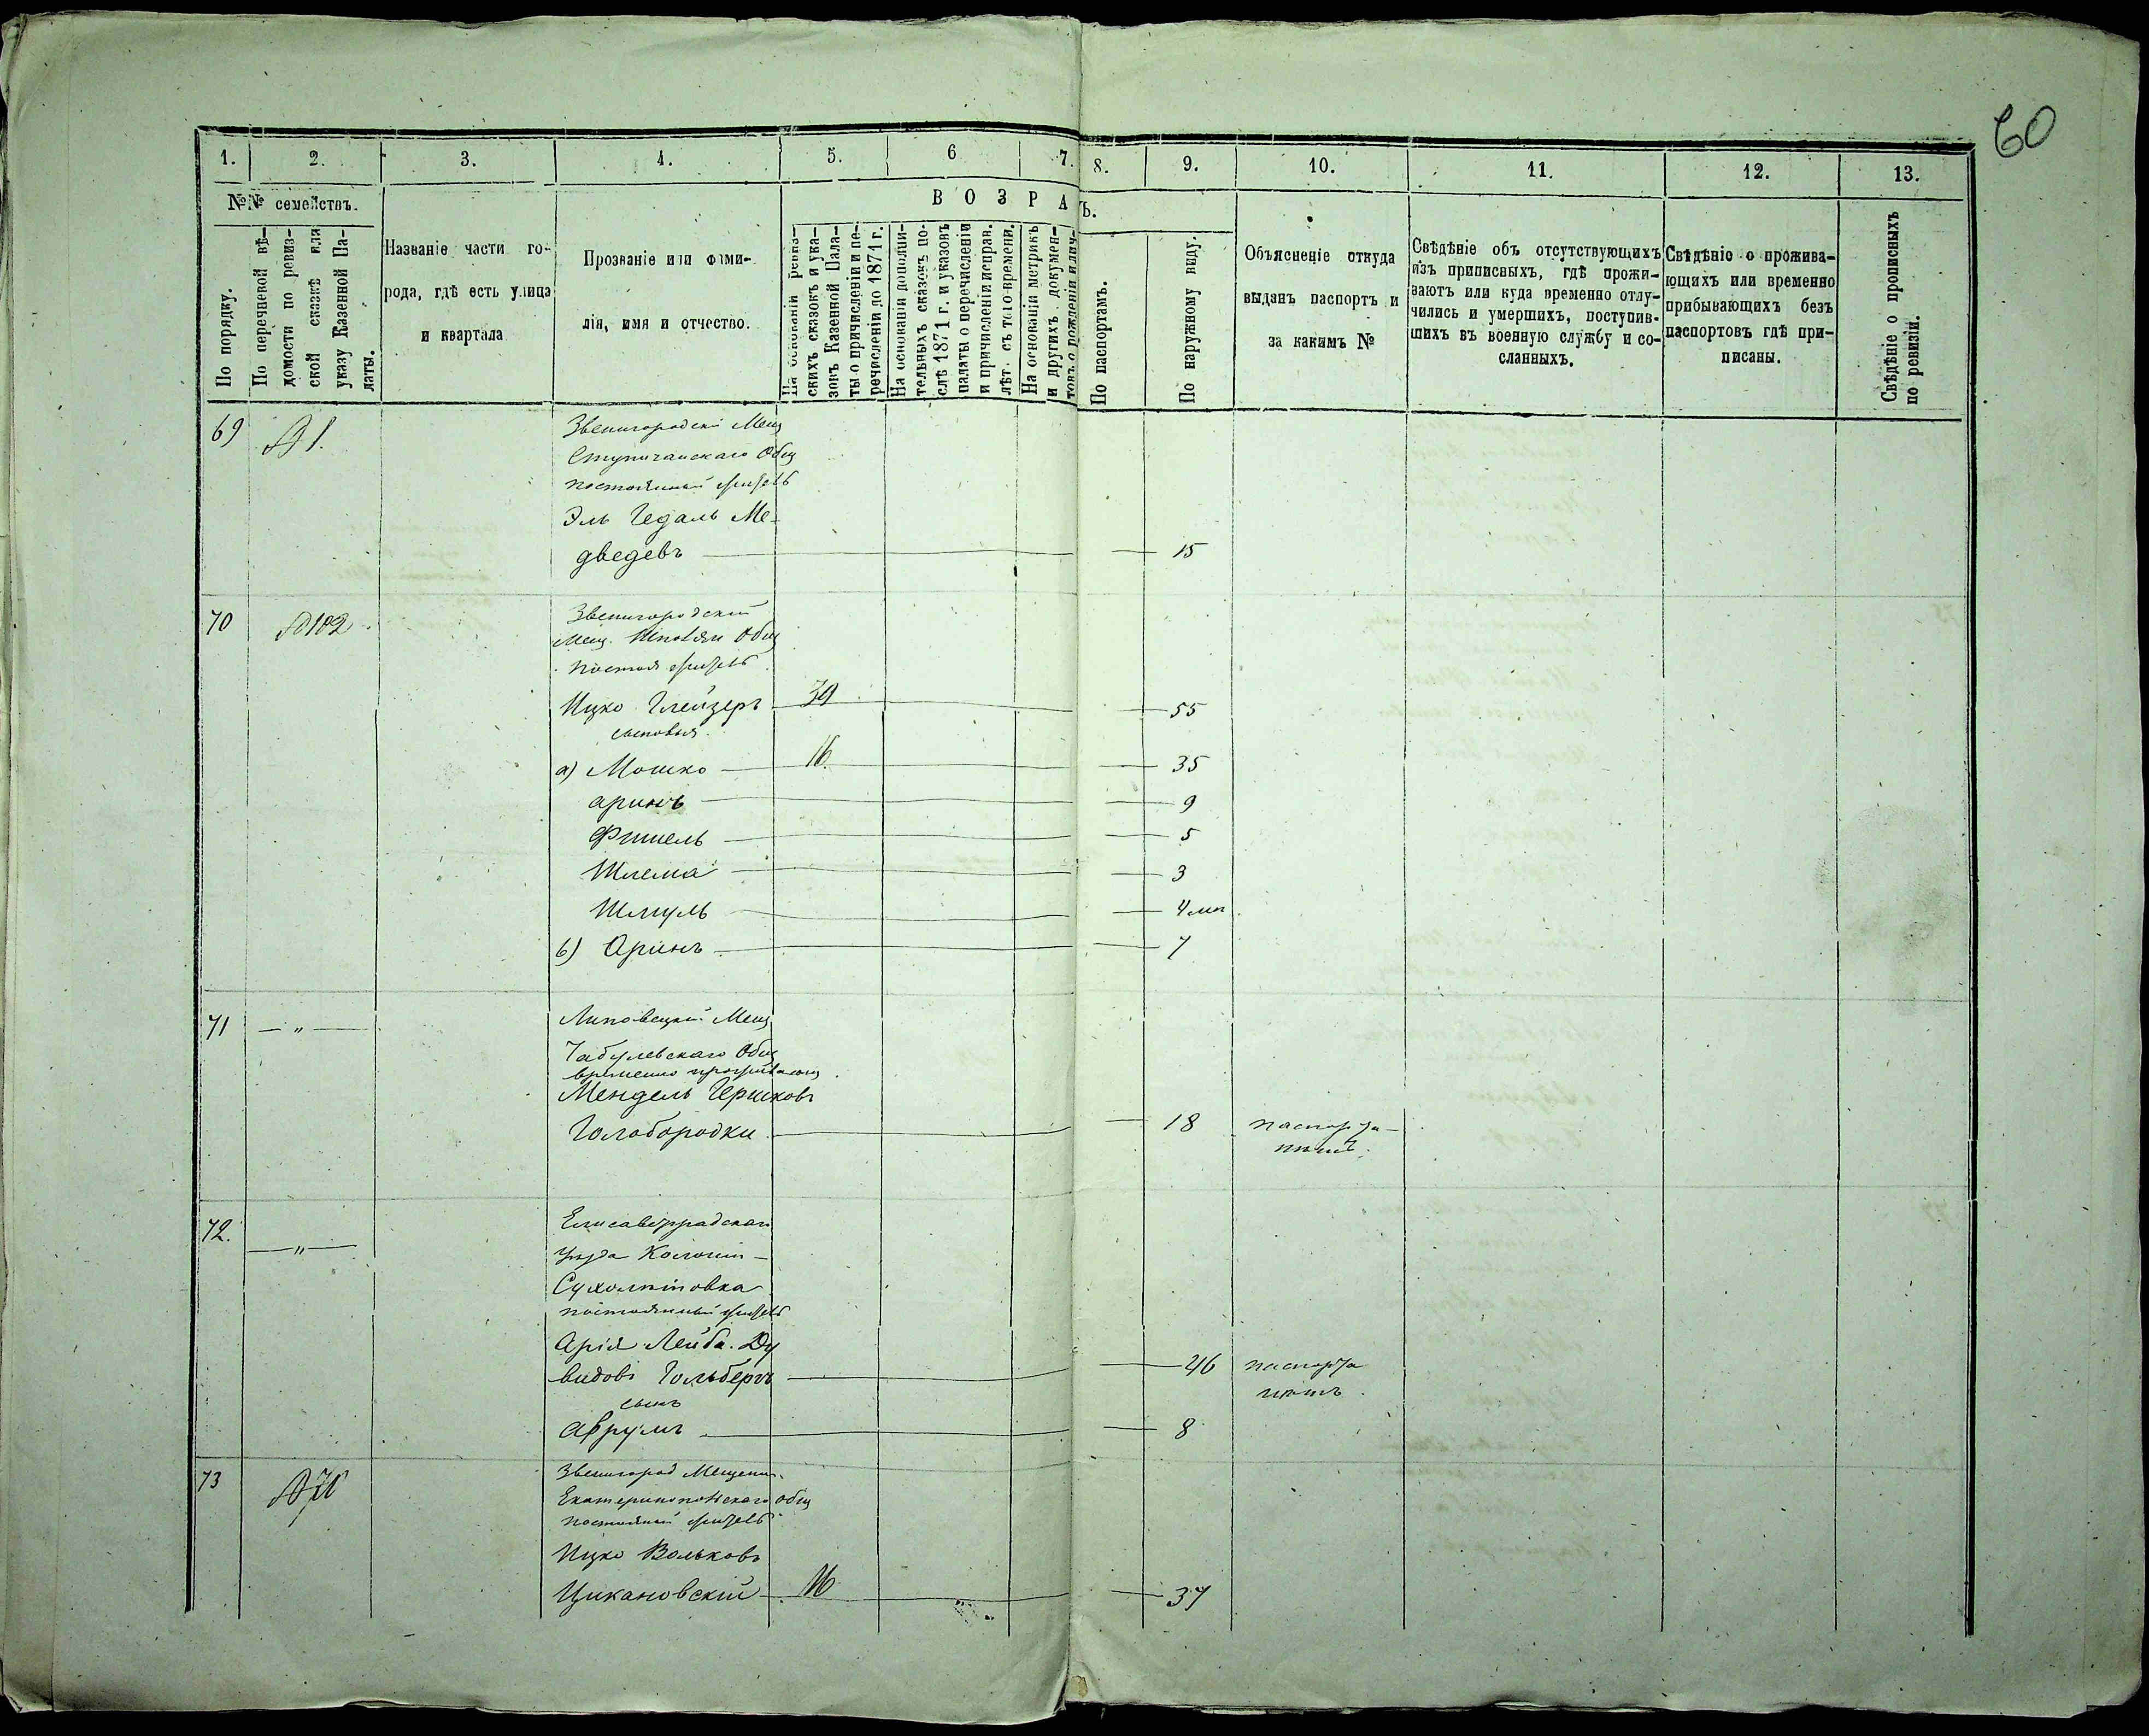 60
1. 2. 3. 4. 5. 6 7. 8. 9. 10. 11. 12. 13.
№№ семействъ.
По порядку.
По перечневой вѣ-
домости по ревиз-
ской сказкѣ или
указу Казенной Па-
латы.
Названіе части го-
рода, гдѣ есть улица
и квартала
Прозваніе или фами-
лія, имя и отчество.
ВОЗРА Ъ.
На основаніи ревиз-
скихъ сказокъ и ука-
зокъ Казенной Пала-
ты о причисленіи и пе-
речисленіи до 1871 г.
На основаніи дополни-
тельныхъ сказокъ по-
слѣ 1871 г. и указовъ
палаты о перечисленіи
и причисленіи исправ.
лѣт. съ того времени.
На основаніи метрикъ
и другихъ докумен-
товъ о рожденіи и лич-
По паспортамъ.
По наружному виду.
Объясненіе откуда
выданъ паспортъ и
за какимъ №
Свѣдѣніе объ отсутствующихъ
изъ приписныхъ, гдѣ прожи-
ваютъ или куда временно отлу-
чились и умершихъ, поступив-
шихъ въ военную службу и со-
сланныхъ.
Свѣдѣніе о прожива-
ющихъ или временно
прибывающихъ безъ
паспортовъ гдѣ при-
писаны.
Свѣдѣніе о прописныхъ
по ревизіи.
69 № 1. Звенигородскі Мещ
Общ
постоянный житель
Эль Гедаль Ме-
дведевъ 15
70 №102 Звенигородскій
Мещ. Шполян Общ
постоя житель
Ицко Глейзеръ 39 55
сыновья
а) Мошко 16 35
аринъ 9
Фишель 5
Шлема 3
Шмуль 4 мп
б) Аринъ 7
71 — " — Липовецкій Мещ
Общ
временно проживающ
Мендель Гершковъ
Голобородки 18 паспорта
нѣтъ.
72. — " — Елисаветградскаго
уѣзда Колоніи
постоянный житель
Арія Лейба Ду
видовъ Гольбергъ 46 паспорта
нѣтъ.
сынъ
Аврумъ 8
73 Звенигород Мещенин.
Екатеринопольскаго общ
постоянный житель
Ицко Вольковъ
Цикановскій 16 37